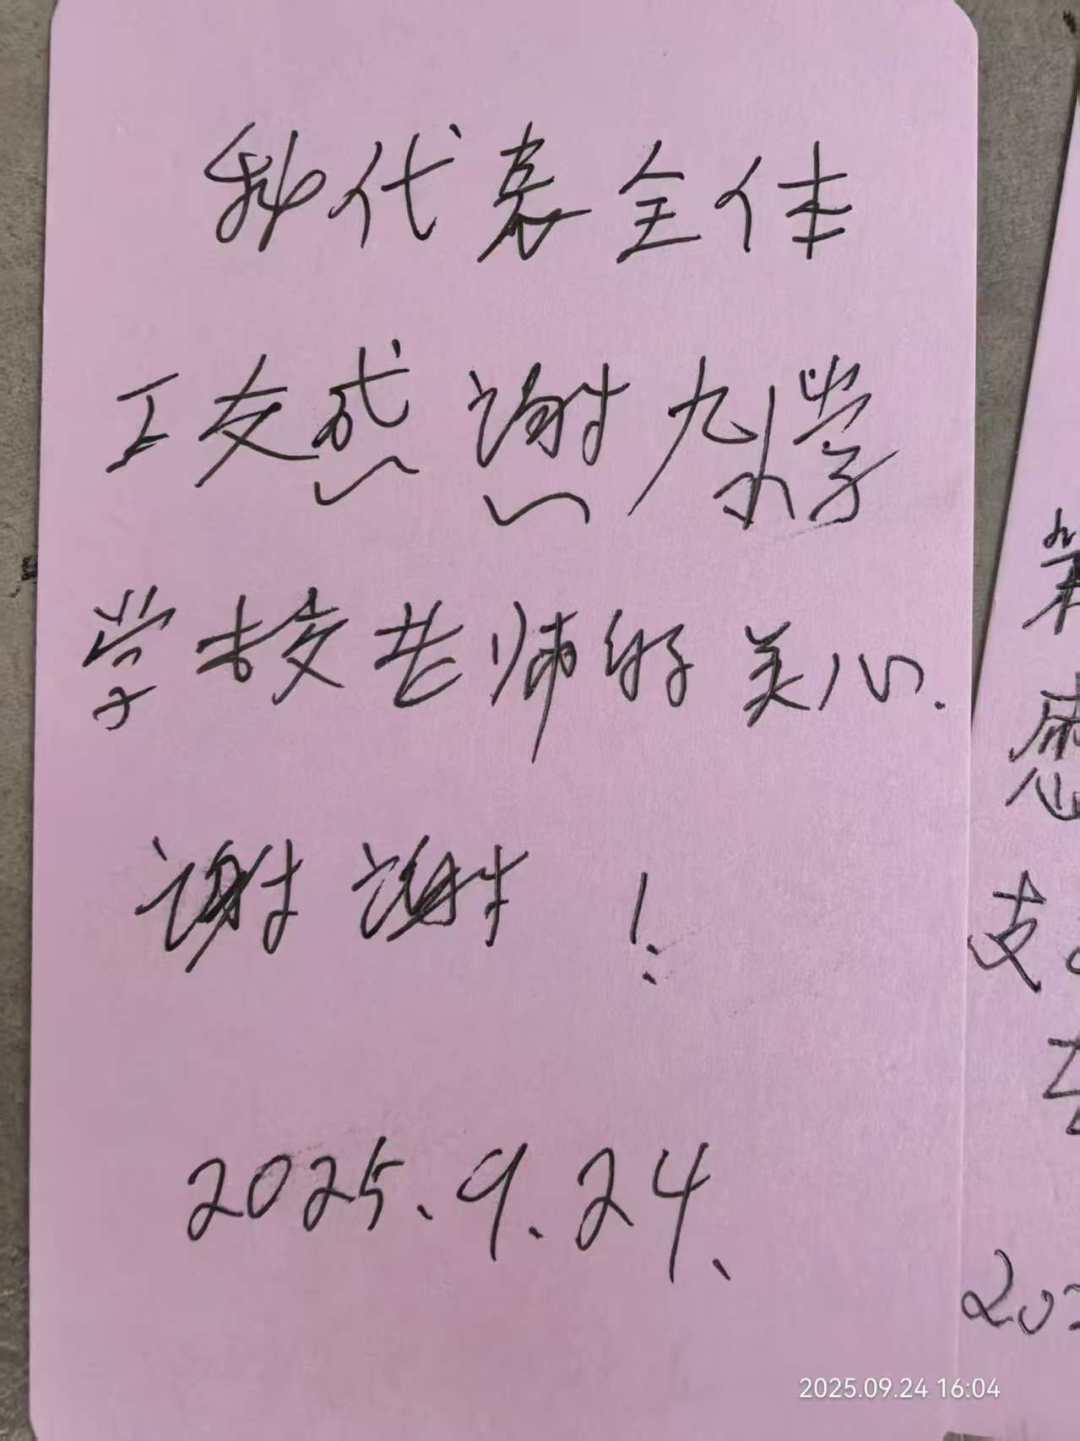 我代表全体
工友感谢
学校老师的关心.
谢谢！
2025.9.24.
支
2025.09.24 16:04